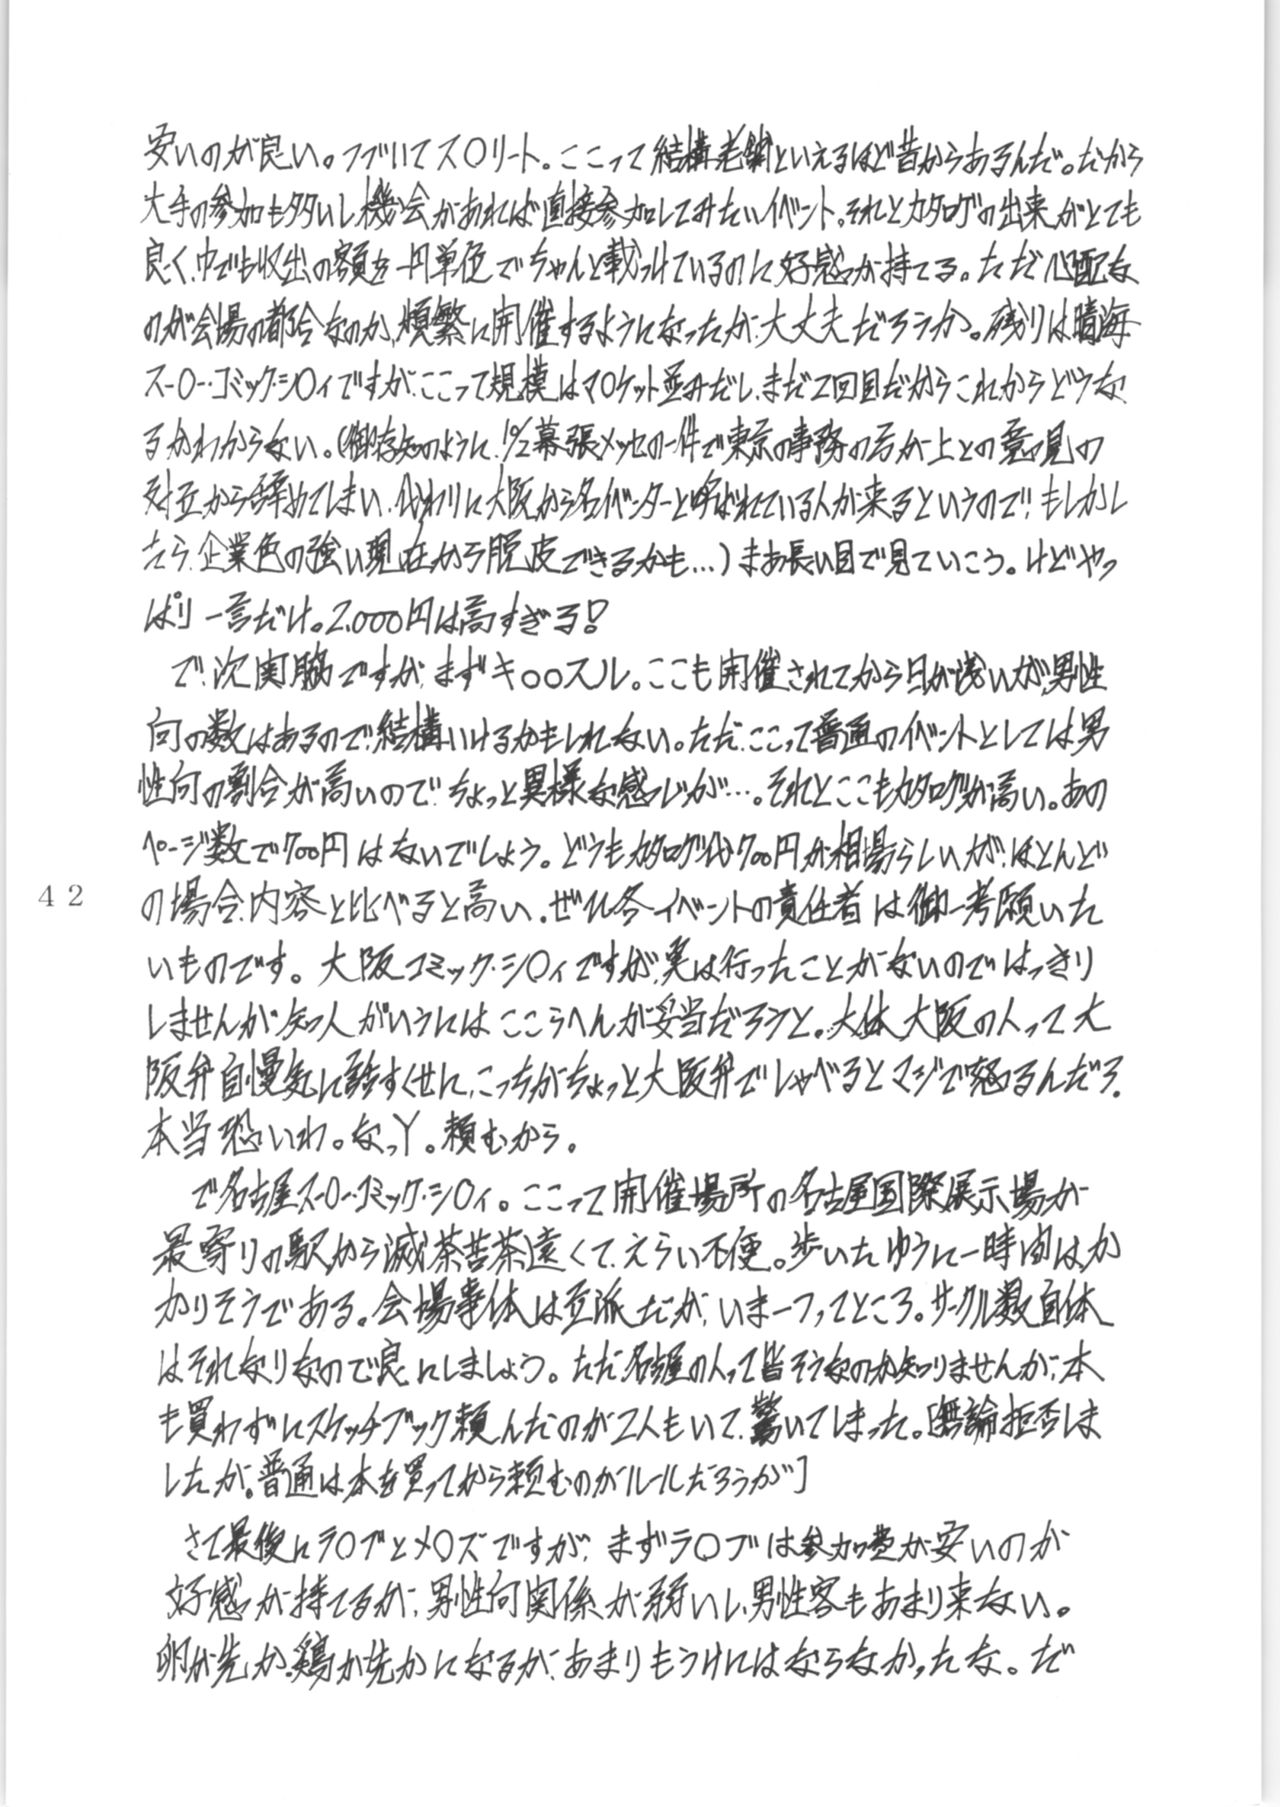 安いのが良い。つづいてス〇リート。ここって結構老舗といえるほど昔からあるんだ。だから
大手の参加も多いし機会があれば直接参加してみたいイベント。それとカタログの出来がとても
良く、中でも収出の額を一円単位でちゃんと載つけているのに好感が持てる。ただ心配な
のが会場の都合なのか、頻繁に開催するようになったが、大丈夫だろうか。残りは晴海
ス-〇-・コミック・シ〇ィですが、ここって規模はマ〇ケット並みだし、まだ2回目だからこれからどうな
るかわからない。(御存知のように、1%幕張メッセの一件で東京の事務の方が上との意見の
対立から辞めてしまい、代わりに大阪から名イベンターと呼ばれている人が来るというので!もしかし
たら、企業色の強い現在から脱皮できるかも…)まあ長い目で見ていこう。けどやっ
ぱり一言だけ。2,000円は高すぎる!
で、次実脇ですが、まずキ〇〇スル。ここも開催されてから日が浅いが、男性
向の数はあるので、結構いけるかもしれない。ただ、ここって普通のイベントとしては男
性向の割合が高いので、ちょっと異様な感じが…。それとここもカタログが高い。あの
ページ数で700円はないでしょう。どうもカタログ代700円が相場らしいが、ほとんど
の場合、内容と比べると高い。ぜひ各イベントの責任者は御一考願いた
いものです。大阪コミック・シ〇ィですが、実は行ったことがないのではっきり
しませんが、知人がいうにはここらへんが妥当だろうと。大体大阪の人って大
阪弁自慢気に話すくせに、こっちがちょっと大阪弁でしゃべるとマジで怒るんだろ。
本当恐いわ。なっY。頼むから。
で名古屋ス-〇-・コミック・シ〇ィ。ここって開催場所の名古屋国際展示場が
最寄りの駅から滅茶苦茶遠くて、えらい不便。歩いたゆうに一時間はか
かりそうである。会場事体は立派だが、いま一つってところ。サークル数自体
はそれなりなので良にしましょう。ただ名古屋の人って皆そうなのか知りませんが、本
も買わずにスケッチブック頼んだのが2人もいて、驚いてしまった。[無論拒否しま
したが。普通は本を買ってから頼むのがルールだろうが]
さて最後にラ〇ブとメ〇ズですが、まずラ〇ブは参加費が安いのが
好感が持てるが、男性向関係が弱いし、男性客もあまり来ない。
卵が先か、鶏が先かになるが、あまりもうけにはならなかったな。だ
42